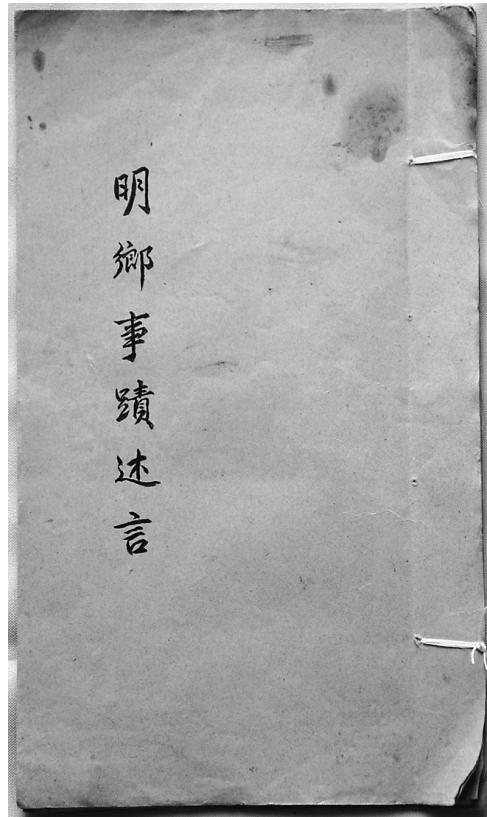 明鄉事蹟述言